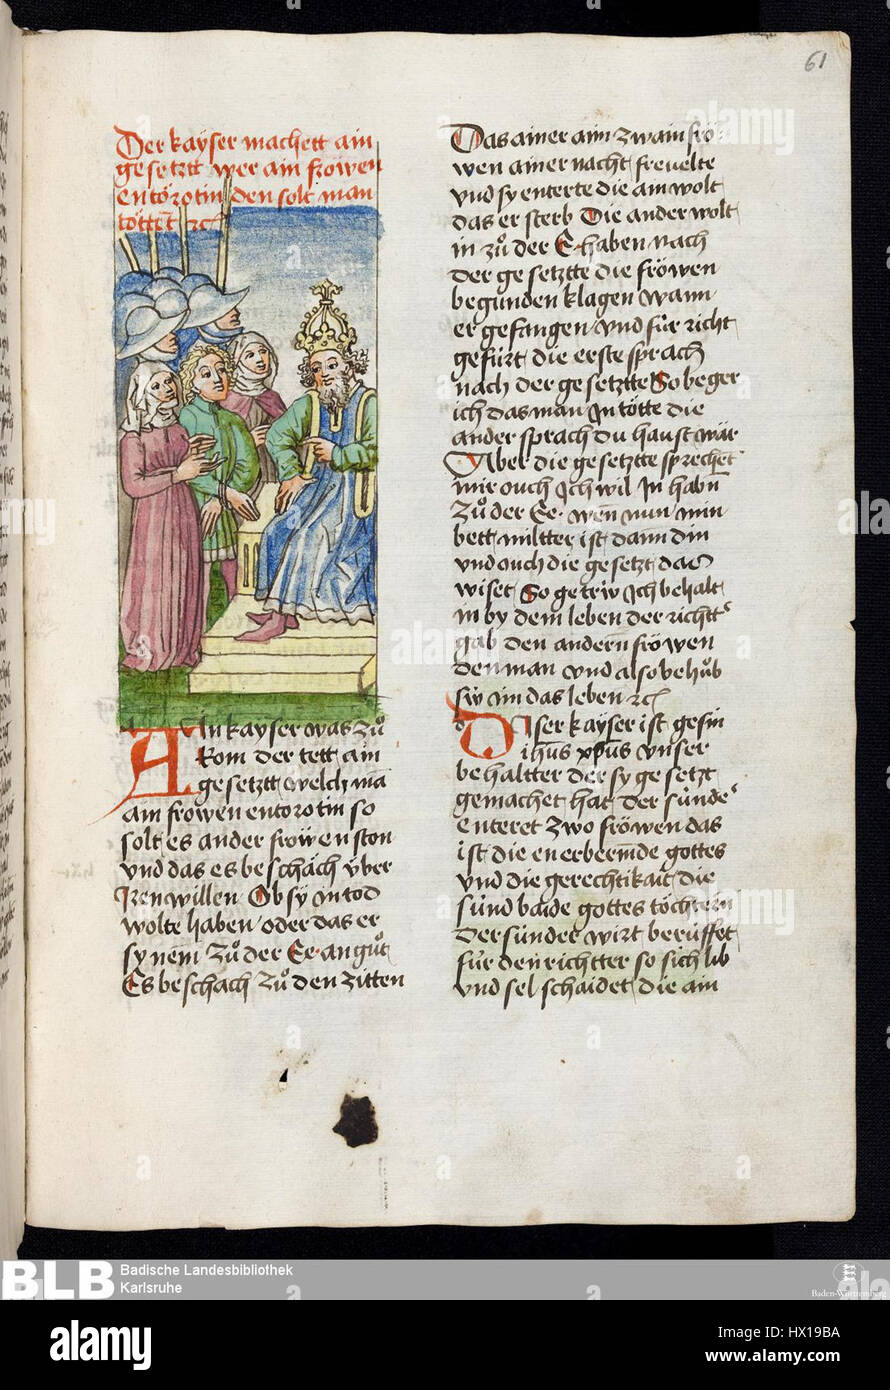 61
Der kaÿser machett ain
gesetztt wer ain frowen
entörotin den solt man
töttett rc
AIn kaÿser was zů
Rom der tett ain
gesetztt welch mā
ain frowen entorotin so
solt es ander fröwen ston
vnd das es beschäch v̈ber
Jren willen Ob sÿ in tod
wolte haben oder das er
sy nēm zů der Ee an gůt
Es beschach zů den zitten
Das ainer aim zwain frö
wen ainer nacht frevelte
vnd sy enterte die ain wolt
das er sterb Die ander wolt
in zů der E haben nach
der gesetztte die fröwen
begunden klagen wann
er gefangen vnd für richt
gefürt die erste sprach
nach der gesetztte So beger
ich das man In tötte die
ander sprach du haust wär
Aber die gesetztte sprechēt
mir ouch Ich wil In habn̄
zů der Ee wēn nun min
bett miltter ist dann din
vnd ouch die gesetzt das
wiset So getriw Ich behalt
in by dem leben der richtt
gab den andern̄ fröwen
den man vnd also behůb
sÿ im das leben rc
DIser kaÿser ist gesin
ihūs xp̄us vnser
behaltter der sy gesetzt
gemachet hat Der sünder
enteret zwo fröwen das
ist die enerbermde gottes
vnd die gerechtikait die
sünd baide gottes töchtern
Der sünder wirt berüffet
für den richtter so sich lib
vnd sel schaidet die ain
BLB
Badische Landesbibliothek
Karlsruhe
Baden-Württemberg
alamy
Image ID: HX19BA
www.alamy.com